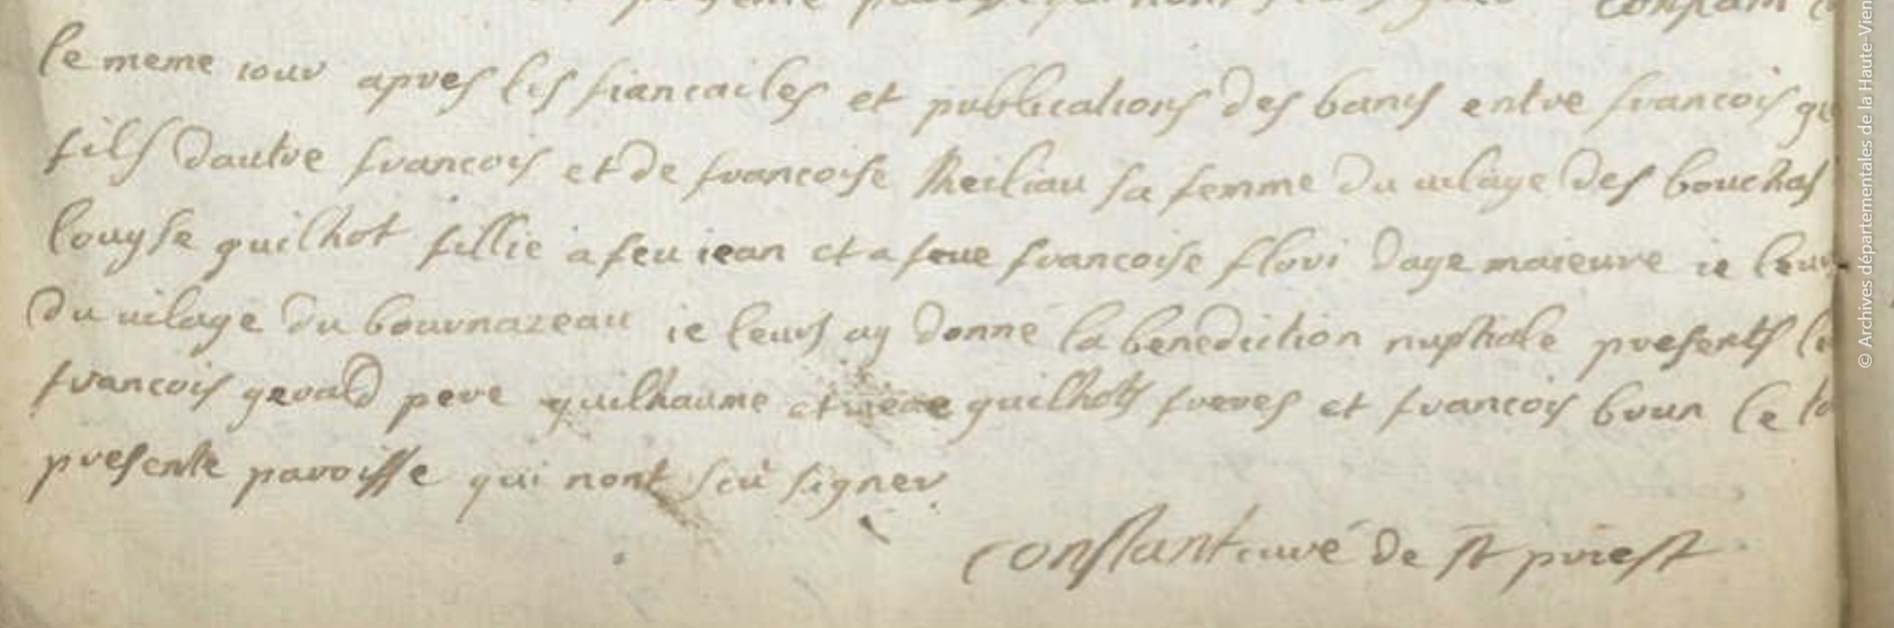 le meme iour apres les fiancailes et publications des bans entre francois
fils dautre francois et de francoise sa femme du uilage des bouchas
louyse guilhot fillie a feu iean et a feue francoise flori dage maieure ie leurs
du uilage du bournazeau ie leurs ay donne la benediction nuptiale presents
francois gerald pere guilhaume et guilhots freres et francois brun le
presente paroisse qui nont sceu signer
constant curé de st priest
© Archives départementales de la Haute-Vien